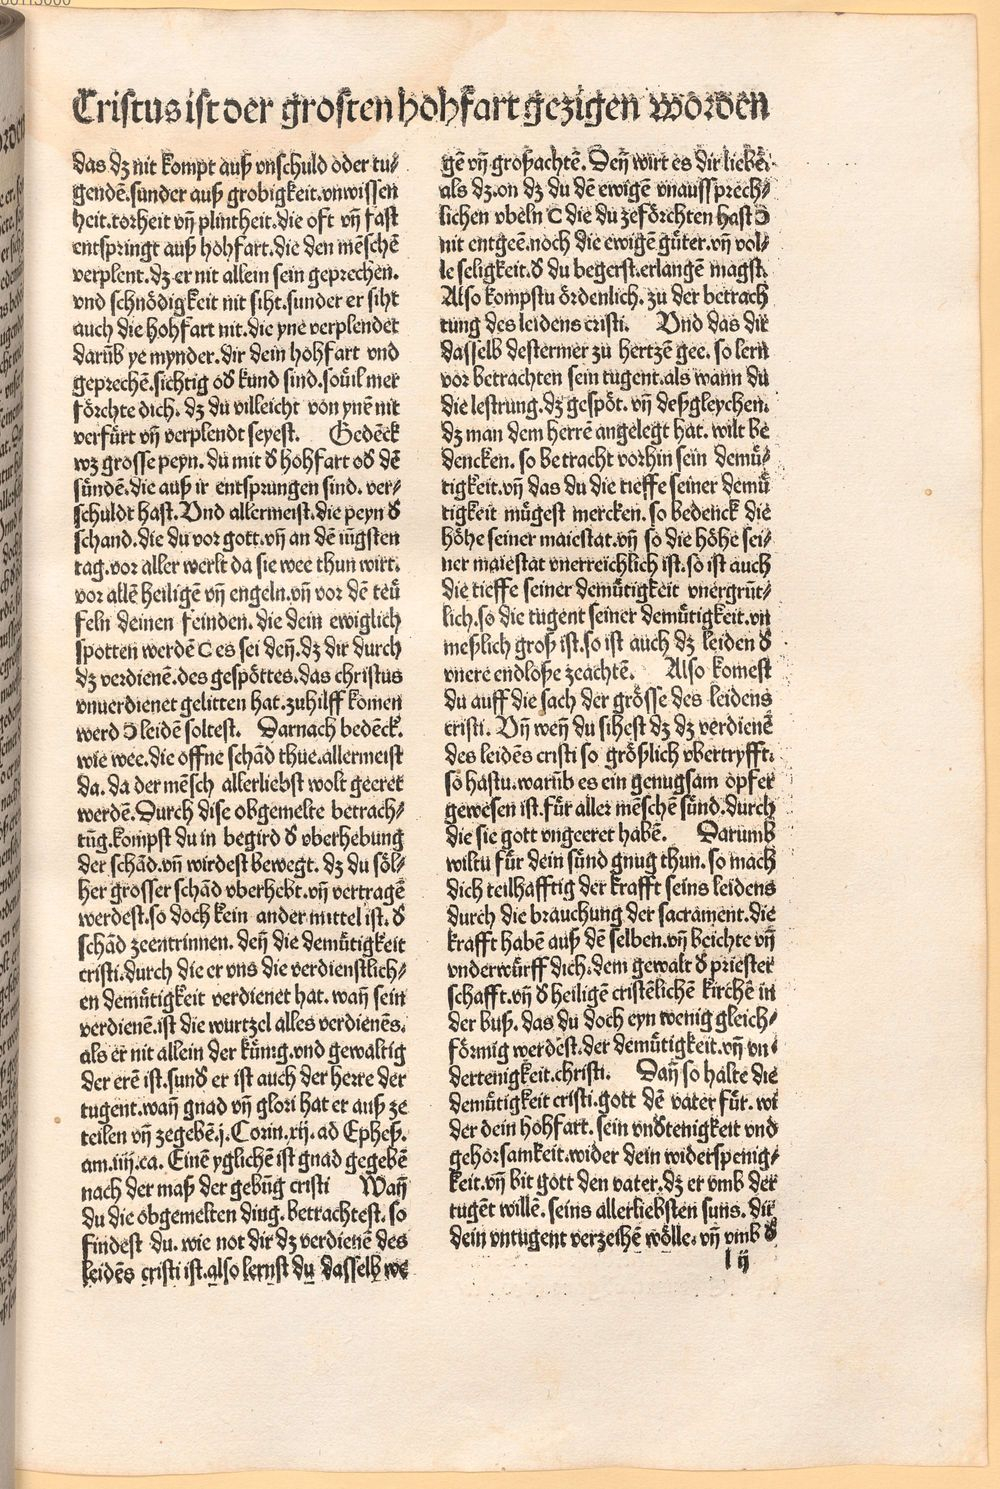 Cristus ist der grosten hohfart gezigen worden
das dz nit kompt auß vnschuld oder tu⸗
gendē.sunder auß grobigkeit.vnwissen
heit.torheit vn̄ plintheit.die oft vn̄ fast
entspringt auß hohfart.die den mēschē
verplent.dz er nit allein sein geprechen.
vnd schnödigkeit nit siht.sunder er siht
auch die hohfart nit.die yne verplendet
darūb ye mynder.dir dein hohfart vnd
geprechē.sichtig od kund sind.souil mer
förchte dich. dz du villeicht von ynē nit
verfürt vn̄ verplendt seyest. Gedēck
wz grosse peyn. du mit d hohfart od dē
sündē.die auß ir entsprungen sind. ver⸗
schuldt hast. Vnd allermeist.die peyn d
schand.die du vor gott.vn̄ an dē iūgsten
tag.vor aller werlt da sie wee thun wirt.
vor allē heiligē vn̄ engeln.vn̄ vor dē teü
feln deinen feinden. die dein ewiglich
spotten werdē ( es sei den̄.dz dir durch
dz verdienē.des gespöttes.das christus
vnuerdienet gelitten hat.zuhilff komen
werd ) leidē soltest. Darnach bedēck.
wie wee.die offne schād thüe.allermeist
da. da der mēsch allerliebst wolt geeret
werdē. Durch dise obgemelte betrach⸗
tūg.kompst du in begird d vberhebung
der schād.vn̄ wirdest bewegt. dz du söl⸗
her grosser schād vberhebt.vn̄ vertragē
werdest.so doch kein ander mittel ist. d
schād zeentrinnen. den̄ die demütigkeit
cristi.durch die er vns die verdienstlich⸗
en demütigkeit verdienet hat. wan̄ sein
verdienē.ist die wurtzel alles verdienēs.
als er nit allein der künig.vnd gewaltig
der erē ist.sund er ist auch der herre der
tugent.wan̄ gnad vn̄ glori hat er auß ze
teilen vn̄ zegebē.j.Corin.xij.ad Epheß.
am.iiij.ca. Einē yglichē ist gnad gegebē
nach der maß der gebūg cristi Wan̄
du die obgemelten ding. betrachtest. so
findest du. wie not dir dz verdienē des
leidēs cristi ist.also lernst du dasselb we
gē vn̄ großachtē. Den̄ wirt es dir liebē.
als dz.on dz du dē ewigē vnaussprech⸗
lichen vbeln ( die du zeförchten hast )
nit entgeē.noch die ewigē güter.vn̄ vol⸗
le seligkeit.d du begerst.erlangē magst.
Also kompstu ördenlich. zu der betrach
tung des leidens cristi. Vnd das dir
dasselb destermer zu hertzē gee. so lern
vor betrachten sein tugent.als wann du
die lestrung.dz gespöt. vn̄ deßgleychen.
dz man dem herrē angelegt hat. wilt be
dencken. so betracht vorhin sein demü⸗
tigkeit.vn̄ das du die tieffe seiner demü
tigkeit mügest mercken. so bedenck die
höhe seiner maiestat.vn̄ so die höhe sei⸗
ner maiestat vnerreichlich ist.so ist auch
die tieffe seiner demütigkeit vnergrüt⸗
lich.so die tugent seiner demütigkeit.vn
meßlich groß ist.so ist auch dz leiden d
vnere endloße zeachtē. Also komest
du auff die sach der grösse des leidens
cristi. Vn̄ wen̄ du sihest dz dz verdienē
des leidēs cristi so größlich vbertryfft.
so hastu.warūb es ein genugsam opfer
gewesen ist.für aller mēschē sünd.durch
die sie gott vngeeret habē. Darumb
wiltu für dein sünd gnug thun. so mach
dich teilhafftig der krafft seins leidens
durch die brauchung der sacrament.die
krafft habē auß dē selben.vn̄ beichte vn̄
vnderwürff dich.dem gewalt d priester
schafft.vn̄ d heiligē cristēlichē kirchē in
der buß. das du doch eyn wenig gleich⸗
förmig werdest.der demütigkeit.vn̄ vn⸗
dertenigkeit.christi. Dan̄ so halte die
demütigkeit cristi.gott dē vater für. wi
der dein hohfart. sein vndtenigkeit vnd
gehorsamkeit.wider dein widerspenig⸗
keit.vn̄ bit gott den vater.dz er vmb der
tugēt willē. seins allerliebsten suns. dir
dein vntugent verzeihē wölle. vn̄ vmb d
l ij